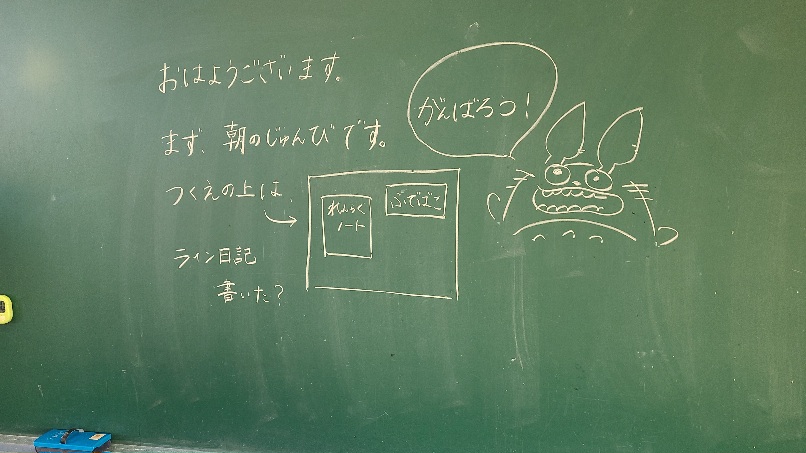 おはようございます。
まず、朝のじゅんびです。
つくえの上は、
れんらく
ノート
ふでばこ
ライン日記
書いた？
がんばろう！